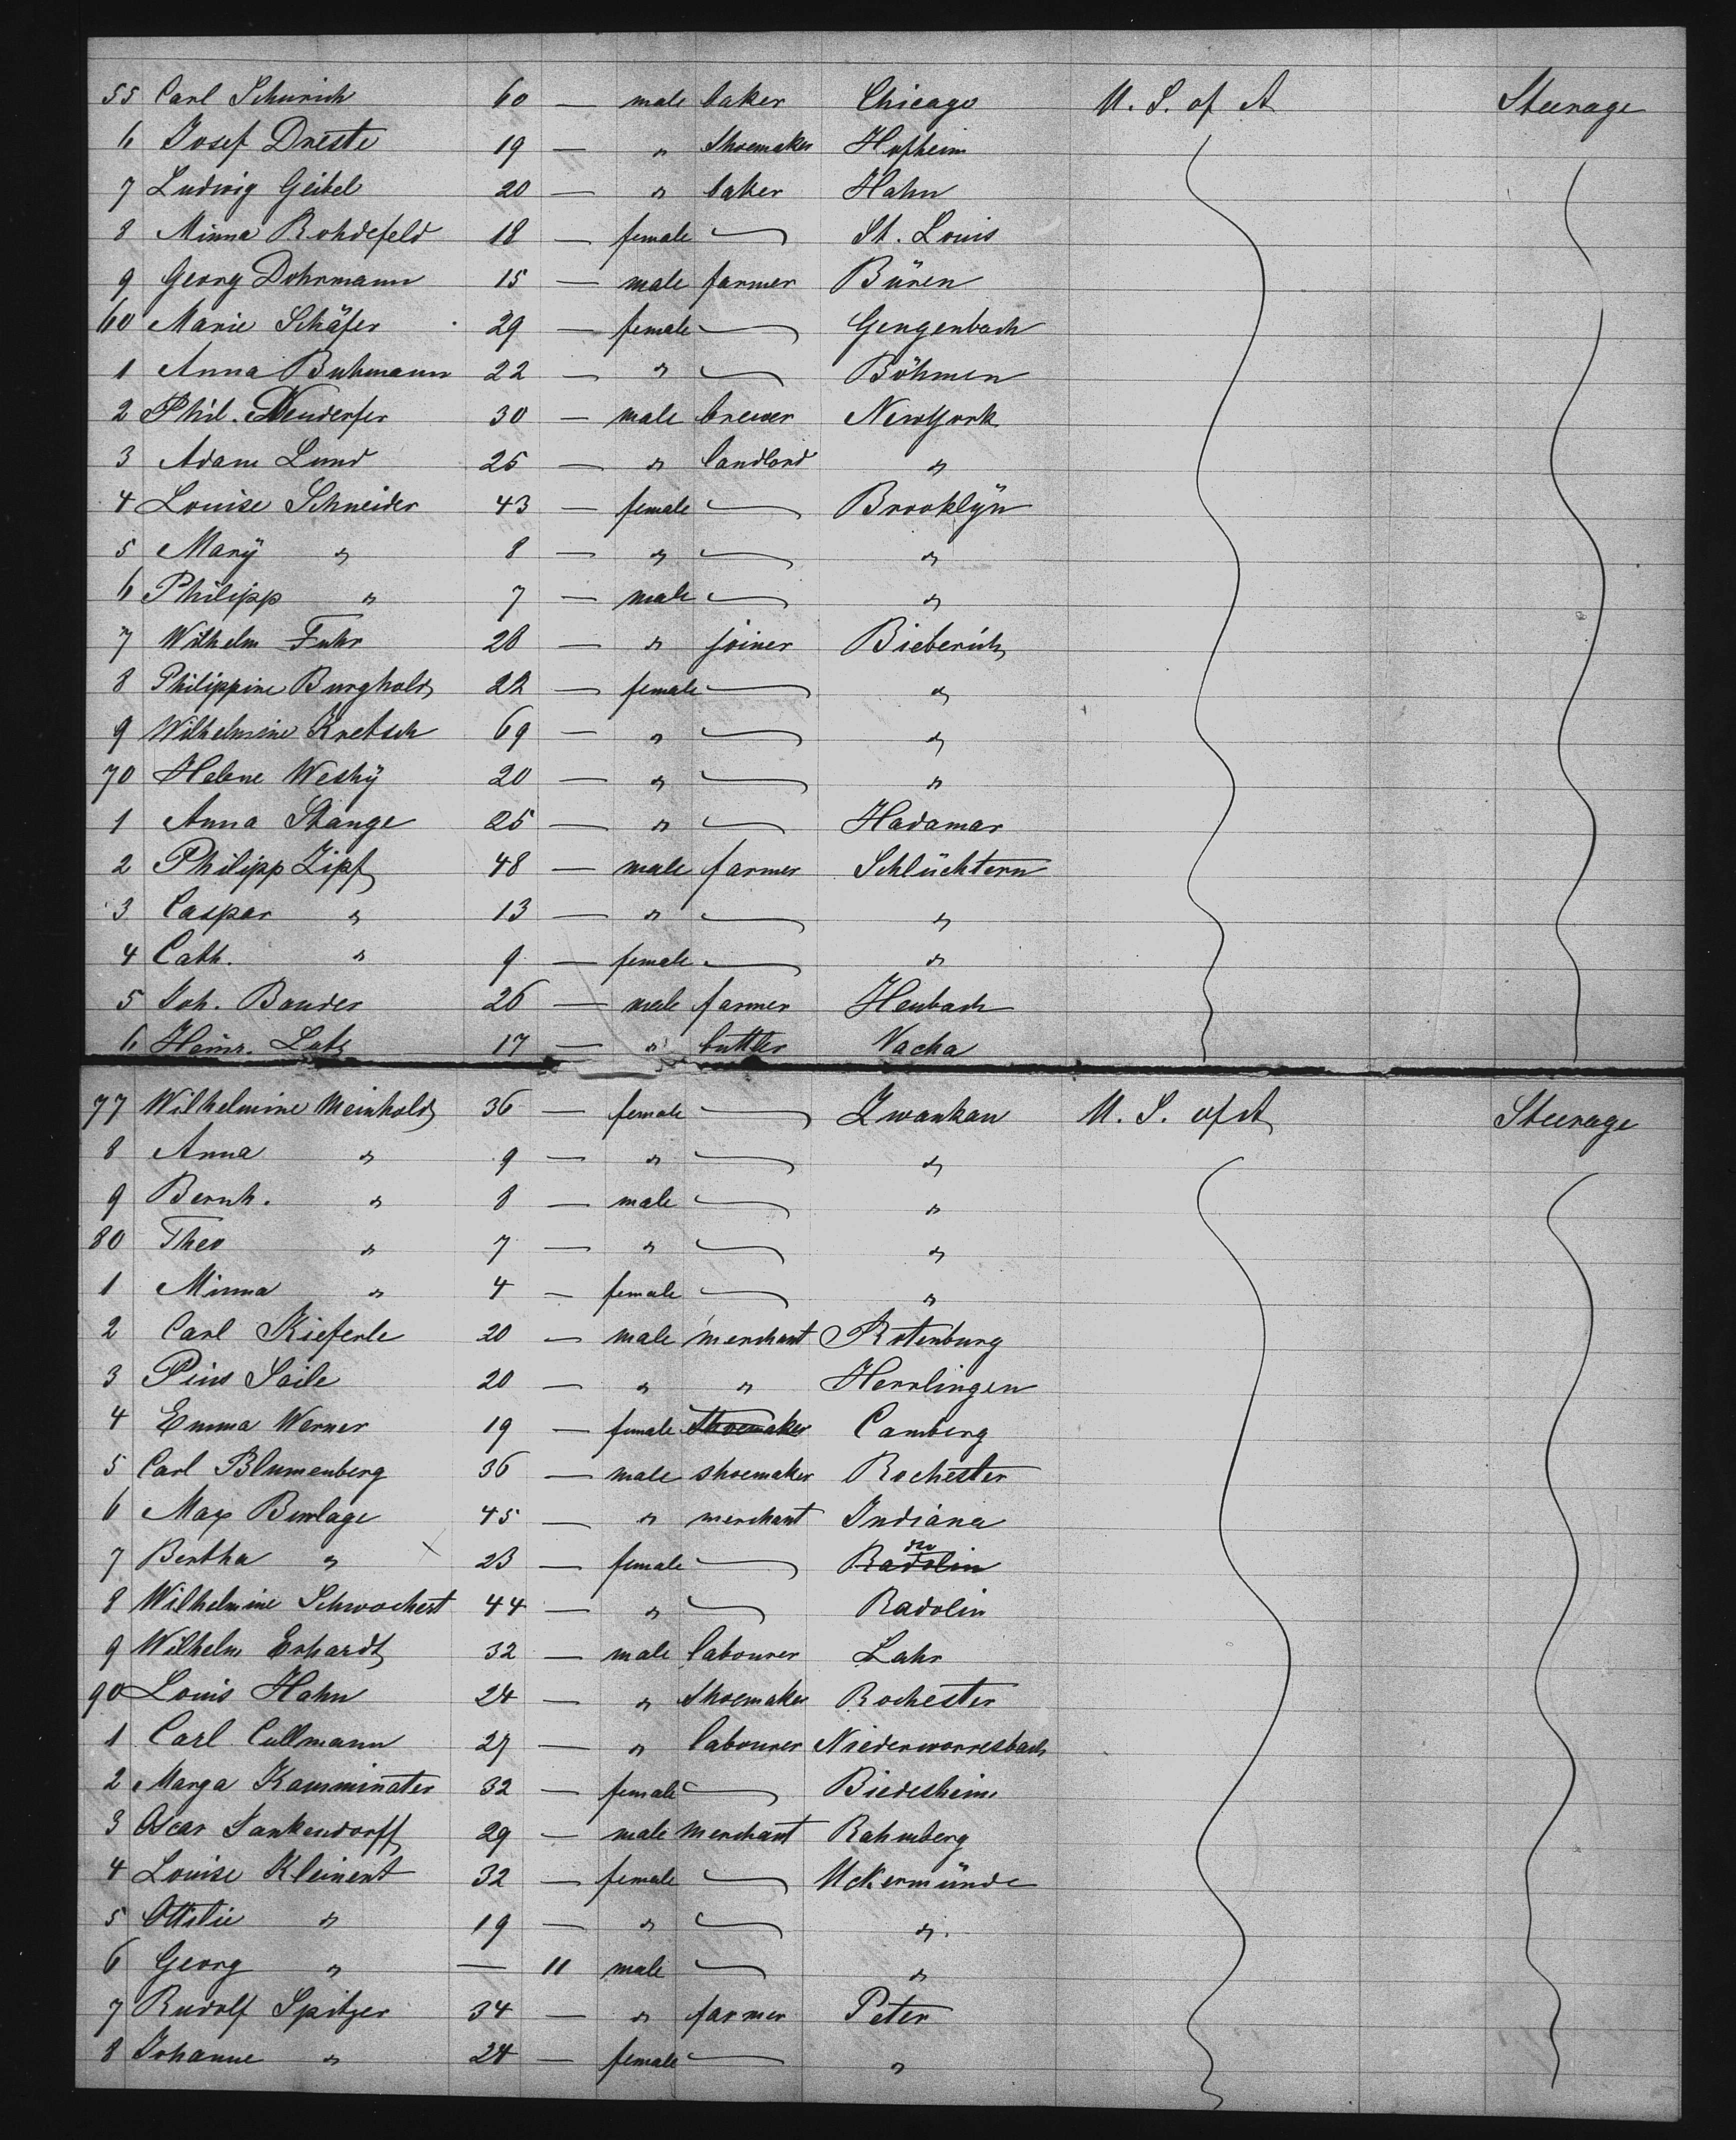 55 Carl Schurich 60 — male baker Chicago U. S. of A Steerage
6 Josef Dreste 19 — " Shoemaker Hofheim
7 Ludwig Geibel 20 — " baker Hahn
8 Minna Rohdefeld 18 — female — St. Louis
9 Georg Dohrmann 15 — male farmer Büren
60 Marie Schäfer 29 — female — Gengenbach
1 Anna Buhmann 22 — " — Böhmen
2 Phil. Neuderfer 30 — male brewer NewYork
3 Adam Lund 25 — " landlord "
4 Louise Schneider 43 — female — Brooklÿn
5 Marÿ " 8 — " — "
6 Philipp " 7 — male — "
7 Wilhelm Fuhr 28 — " joiner Bieberich
8 Philippine Burghold 22 — female — "
9 Wilhelmine Kretsch 69 — " — "
70 Helene 20 — " — "
1 Anna Stange 25 — " — Hadamar
2 Philipp Zipf 48 — male farmer Schlüchtern
3 Caspar " 13 — " — "
4 Cath. " 9 — female — "
5 Joh. Bauder 26 — male farmer Heubach
6 Heinr. Lutz 17 — " buttler Vacha
77 Wilhelmine Meinhold 36 — female — Zwankau U. S. of A Steerage
8 Anna " 9 — " — "
9 Bernh. " 8 — male — "
80 Theo " 7 — " — "
1 Minna " 4 — female — "
2 Carl Kieferle 20 — male merchant Rotenburg
3 Pius Saile 20 — " " Herrlingen
4 Emma Werner 19 — female Shoemaker Camberg
5 Carl Blumenberg 36 — male shoemaker Rochester
6 Max Burlage 45 — " merchant Indiana
7 Bertha " 23 — female — do Radolin
8 Wilhelmine Schwochert 44 — " — Radolin
9 Wilhelm Erhardt 32 — male labourer Lahr
90 Louis Hahn 24 — " Shoemaker Rochester
1 Carl Cullmann 27 — " labourer Niederworresbach
2 Marga Kamminater 32 — female — Biedesheim
3 Oscar Sankendorff 29 — male merchant Rahmberg
4 Louise Kleinert 32 — female — Uckermünde
5 Ottilie " 19 — " — "
6 Georg " — 11 male — "
7 Rudolf Spitzer 34 — " farmer Peter
8 Johanne " 24 — female — "